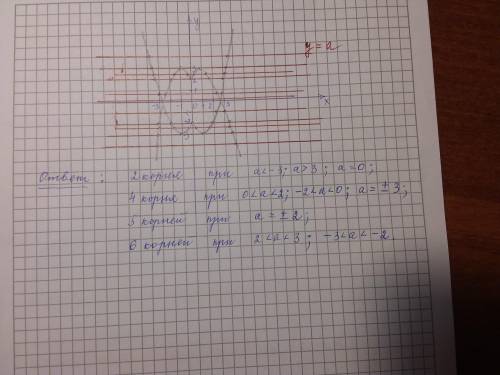 y
y = a
x
Ответ: 2 корня при a < -3; a > 3; a = 0;
4 корня при 0 < a < 2; -2 < a < 0; a = ± 3;
5 корней при a = ± 2;
6 корней при 2 < a < 3; -3 < a < -2